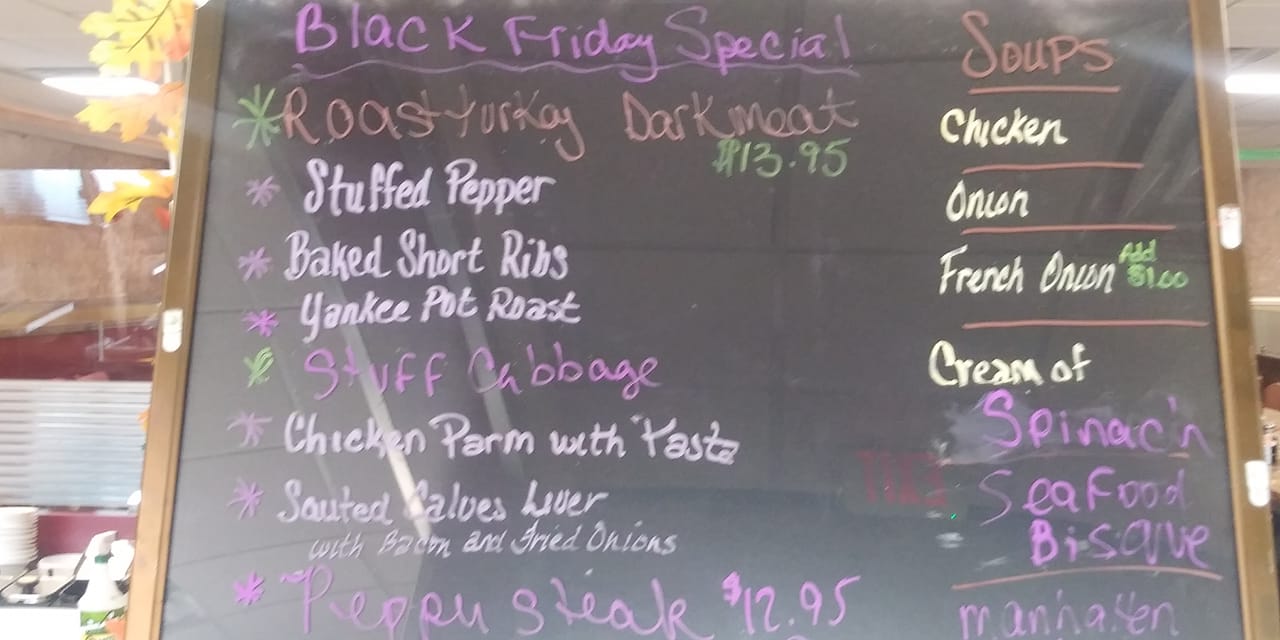 Black Friday Special
Roast turkey Dark meat
$13.95
Stuffed Pepper
Baked Short Ribs
Yankee Pot Roast
Stuff Cabbage
Chicken Parm with Pasta
Sauted Calves Liver
with Bacon and Fried Onions
Peppu steak $12.95
Soups
Chicken
Onion
French Onion Add $1.00
Cream of
Spinach
SeaFood
Bisque
manhatten